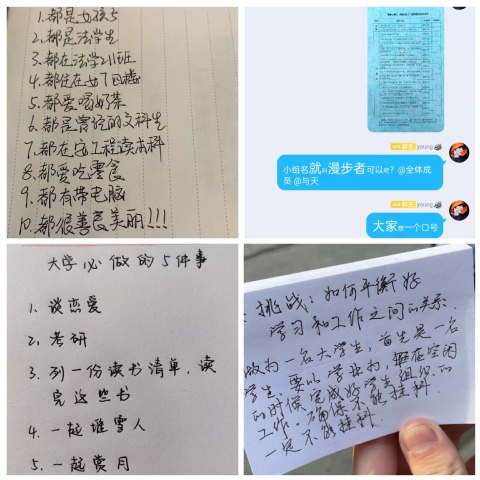 1.都是女孩子
2.都是法学生
3.都在法学211班
4.都住在女7四楼
5.都爱喝奶茶
6.都是曾经的文科生
7.都在安工程读本科
8.都爱吃零食
9.都有带电脑
10.都很善良美丽!!!
young
小组名就叫漫步者可以吧？@全体成员 @与天
young
大家想一个口号
大学必做的5件事
1.谈恋爱
2.考研
3.列一份读书清单，读完这些书
4.一起堆雪人
5.一起赏月
挑战：如何平衡好
学习和工作之间的关系.
做为一名大学生，首先是一名
学生，要以学业为，在空闲
的时候完成好学生组织的
工作。确保不能挂科.
一定不能挂科